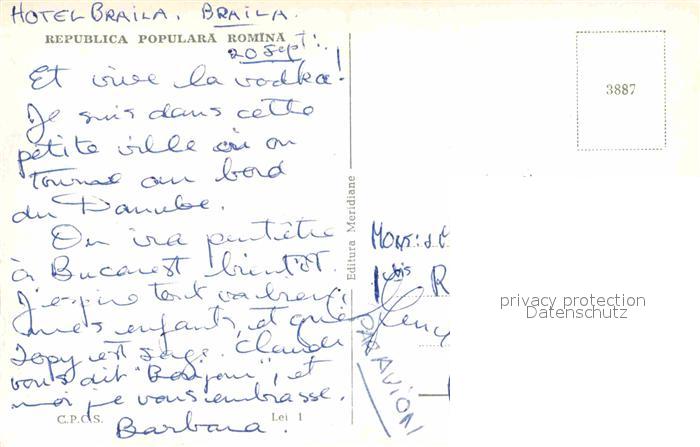 HOTEL BRAILA. BRAILA.
REPUBLICA POPULARĂ ROMÎNĂ
20 Sept:.
Et vive la vodka!
Je suis dans cette
petite ville où on
tourne au bord
du Danube.
On ira peutêtre
à Bucarest bientôt.
J'espère tout va bien,
mes enfants, et que
est sage. Claude
vous dit "Bonjour", et
moi je vous embrasse.
Barbara.
C.P.C.S. Lei 1
Editura Meridiane
3887
1 bis R
PAR AVION
privacy protection
Datenschutz